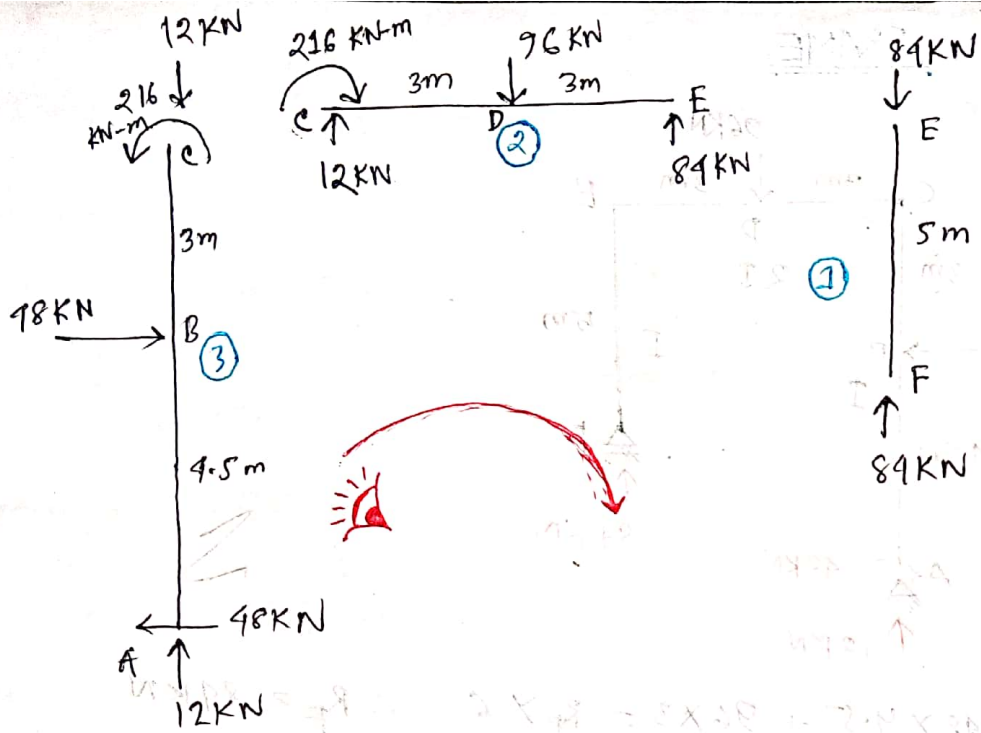 12 KN
216
KN-m
C
3m
48 KN
B
3
4.5 m
48 KN
A
12 KN
216 KN-m
96 KN
3m
3m
C
D
E
2
12 KN
84 KN
84 KN
E
5 m
1
F
84 KN